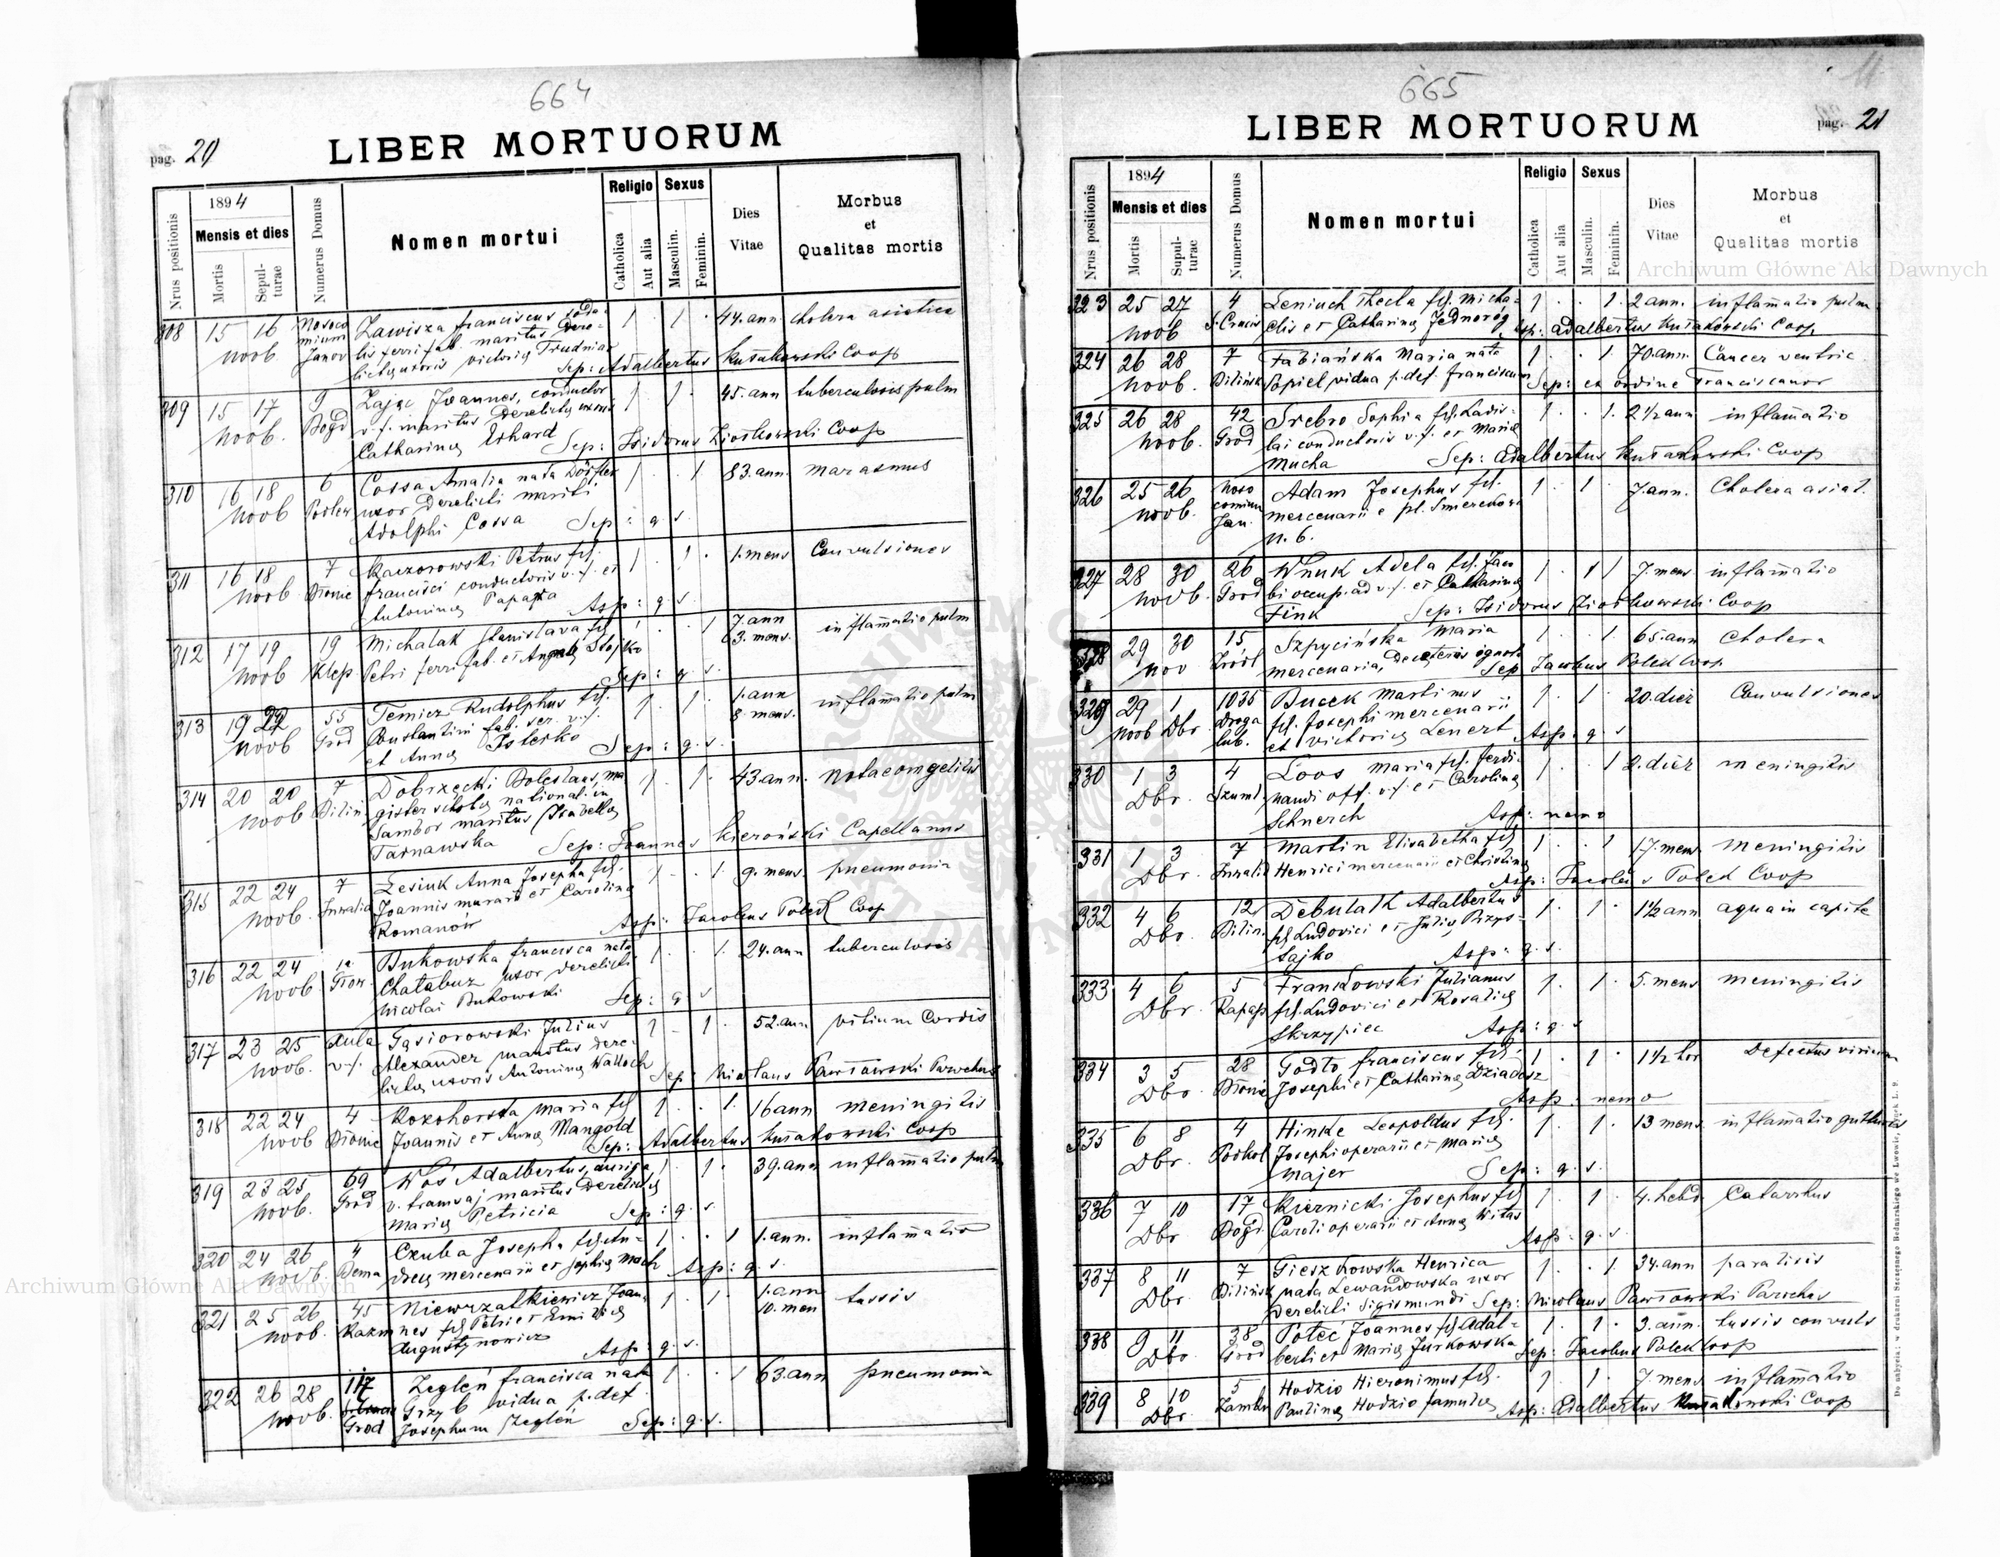 664
pag. 20
LIBER MORTUORUM
Nrus positionis
1894
Mensis et dies
Mortis
Sepul-
turae
Numerus Domus
Nomen mortui
Religio
Catholica
Aut alia
Sexus
Masculin.
Feminin.
Dies
Vitae
Morbus
et
Qualitas mortis
308 15 16 Nooco Zawisza Franciscus soda- 1 . 1 . 44. ann cholera asiatica
Noob. mium lis ferri fab. maritus dere-
Janov lictę uxoris Victorię Trudniar Sep: Adalbertus Kusakowski Coop
309 15 17 9 Zając Joannes, conductor 1 . 1 . 45. ann tuberculosis pulm
Noob. Bogd v. f. maritus derelictę uxoris
Catharinę Erhard Sep: Isidorus Ziotkowski Coop
310 16 18 6 Cossa Amalia nata Dörfler 1 . . 1 83. ann. marasmus
Noob Podlew uxor derelicti mariti
Adolphi Cossa Sep: q. s.
311 16 18 7 Kaczorowski Petrus fil. 1 . 1 . 1. mens Convulsiones
Noob. Bionie Francisci conductoris v. f. et
Antoninę Asp: q. s.
312 17 19 19 Michalak Stanislava fil 1 . . 1 7. ann inflam̄atio pulm
3. mens.
Noob Klep Petri ferri fab. et Angelę Stojko
Sep: q. s.
313 19 22 55 Temicz Rudolphus fil. 1 . 1 . 1. ann inflam̄atio pulm
8. mens.
Noob Grod Constantini fab. ser. v. f.
et Annę Isterko Sep: q. s.
314 20 20 7 Dobrzecki Boleslaus, ma 1 . 1 . 43. ann.
Noob Bilin gister scholę national. in
Sambor maritus Isabellę
Tarnawska Sep: Joannes Kieroński Capellanus
315 22 24 7 Lesiuk Anna Josepha fil. 1 . . 1 9. mens. pneumonia
Noob. Inwalid Joannis murarii et Carolinę
Romanów Asp: Jacobus Polek Coop
316 22 24 12 Bukowska Francisca nata 1 . . 1. 24. ann tuberculosis
Noob. Chatabuz uxor derelicti
Nicolai Bukowski Sep: q. s
317 23 25 Aula Gąsiorowski Julius 1 . 1 . 52. ann vitium Cordis
Noob. v. f. Alexander maritus dere-
lictę uxoris Antoninę Sep: Nicolaus Pawłowski Parochus
318 22 24 4 Kozohorska Maria fil 1 . . 1. 16 ann meningitis
Noob Bionie Joannis et Annę Mangold
Sep: Adalbertus Kusakowski Coop
319 23 25 69 Woś Adalbertus, auriga 1 . 1 . 39. ann inflam̄atio pulm
Noob. Grod v. tramvaj maritus derelictę
Marię Petricia Sep: q. s.
320 24 26 4 Czuba Josepha fil. An- 1 . . 1 1. ann. inflam̄atio
Noob. Bema dreę mercenarii et Sophię Mach Asp: q. s.
321 25 26 45 Niewrzałkiewicz Joan- 1 . 1 . 1. ann tussis
10. men
Noob. Kazm nes fil Petri et Emilię
Augustynowicz Asp: q. s.
322 26 28 117 Zegleń Francisca nata 1 . . 1 63. ann pneumonia
Noob. Grzyb vidua p. def.
Grod Josephum Zegleń Sep: q. s.
665
pag. 21
LIBER MORTUORUM
Nrus positionis
1894
Mensis et dies
Mortis
Sepul-
turae
Numerus Domus
Nomen mortui
Religio
Catholica
Aut alia
Sexus
Masculin.
Feminin.
Dies
Vitae
Morbus
et
Qualitas mortis
323 25 27 4 Leniuch Thecla fil. Micha- 1 . . 1. 2 ann. inflam̄atio pulm.
Noob S. Crucis elis et Catharinę Jednoróg Asp: Adalbertus Kusakowski Coop
324 26 28 7 Fabiańska Maria nata 1 . . 1. 70. ann. Cancer ventric.
Noob. Bilińsk Sopiel vidua p. def. Franciscum Sep: ex ordine Franciscanor
325 26 28 42 Srebro Sophia fil. Ladis- 1 . . 1. 2 1/2 ann inflam̄atio
Noob. Grod lai conductoris v. f. et Marię
Mucha Sep: Adalbertus Kusakowski Coop
326 25 26 Noso Adam Josephus fil. 1 . 1 . 7. ann. Cholera asiat.
Noob. comium mercenarii e pl.
Jan. n. 6.
327 28 30 26 Wnuk Adela fil. Jaco 1 . . 1 7. mens inflam̄atio
Noob. Grod bi occup. ad v. f. et Catharinę
Fink Sep: Isidorus Ziotkowski Coop
328 29 30 15 Szpycińska Maria 1 . . 1. 65. ann Cholera
Nov Zródl mercenaria, de cęteris ignota Sep Jacobus Polek Coop
329 29 1 1035 Bucek Martinus 1 . 1 . 20. dier Convulsiones
Noob Dbr droga fil. Josephi mercenarii
lub. et Victorię Lenert Asp: q. s
330 1 3 4 Loos Maria fil. Ferdi- 1 . . 1 2. dier meningitis
Dbr. Szuml. nandi off. v. f. et Carolinę
Schnerch Asp: nemo
331 1 3 7 Martin Elisabetha fil 1 . . 1 17. mens meningitis
Dbr. Inwalid Henrici mercenarii et Christinę
Asp: Jacobus Polek Coop
332 4 6 12 Debulak Adalbertus 1 . 1 . 1 1/2 ann aqua in capite
Dbr. Bilin. fil Ludovici et Julię Przys-
tajko Asp: q. s.
333 4 6 5 Frankowski Julianus 1 . 1 . 5. mens meningitis
Dbr. Rapap fil. Ludovici et Rosalię
Skrzypiec Asp: q. s
334 3 5 28 Godło Franciscus fil. 1 . 1 . 1 1/2 hor Defectus virium
Dbr. Bionie Josephi et Catharinę Dziadosz
Asp: nemo
335 6 8 4 Hinke Leopoldus fil. 1 . 1 . 13 mens. inflam̄atio gutturis
Dbr. Podhol Josephi operarii et Marię
Majer Sep: q. s.
336 7 10 17 Kiernicki Josephus fil 1 . 1 . 4. hebd. Catarrhus
Dbr Bogd. Caroli operarii et Annę Witas
Asp: q. s.
337 8 11 7 Gieszkowska Henrica 1 . . 1. 34. ann paralisis
Dbr. Bilińsk nata Lewandowska uxor
derelicti Sigismundi Sep: Nicolaus Pawłowski Parochus
338 9 11 38 Poteć Joannes fil. Adal- 1 . 1 . 3. ann. tussis convuls
Dbr. Grod berti et Marię Jurkowska Sep: Jacobus Polek Coop
339 8 10 5 Hodzio Hieronimus fil. 1 . 1 . 7. mens inflam̄atio
Dbr. Zamkn Paulinę Hodzio famulę Asp: Adalbertus Kusakowski Coop
Do nabycia: w drukarni Szczęsnego Bednarskiego we Lwowie, Rynek L. 9.
Archiwum Główne Akt Dawnych
Archiwum Główne Akt Dawnych